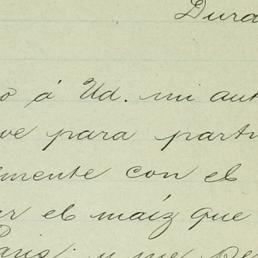 Dura
o á Ud. mi aut
ve para part
mente con el
ar el maíz que
Paris; y me pe